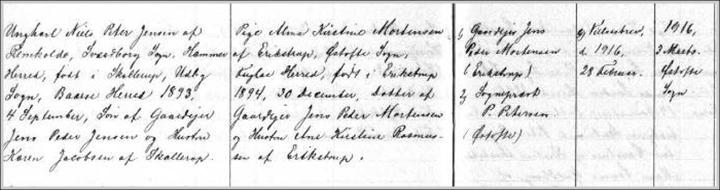 Ungkarl Niels Peter Jensen af
Remkolde, Sværdborg Sogn, Hammer
Herred, født i Skallerup, Udby
Sogn, Baarse Herred 1893,
4 September, Søn af Gaardejer
Jens Peder Jensen og Hustru
Karen Jacobsen af Skallerup.
Pige Alma Kirstine Mortensen
af Erikstrup, Østofte Sogn,
Fuglse Herred, født i Erikstrup
1894, 30 December, Datter af
Gaardejer Jens Peder Mortensen
og Hustru Ane Kirstine Rasmus-
sen af Erikstrup.
1) Gaardejer Jens
Peder Mortensen
(Erikstrup)
2) Sognepræst
P. Petersen
(Østofte)
9) Vielsesbrev,
d. 1916,
28 Februar.
1916,
3 Marts.
Østofte
Sogn